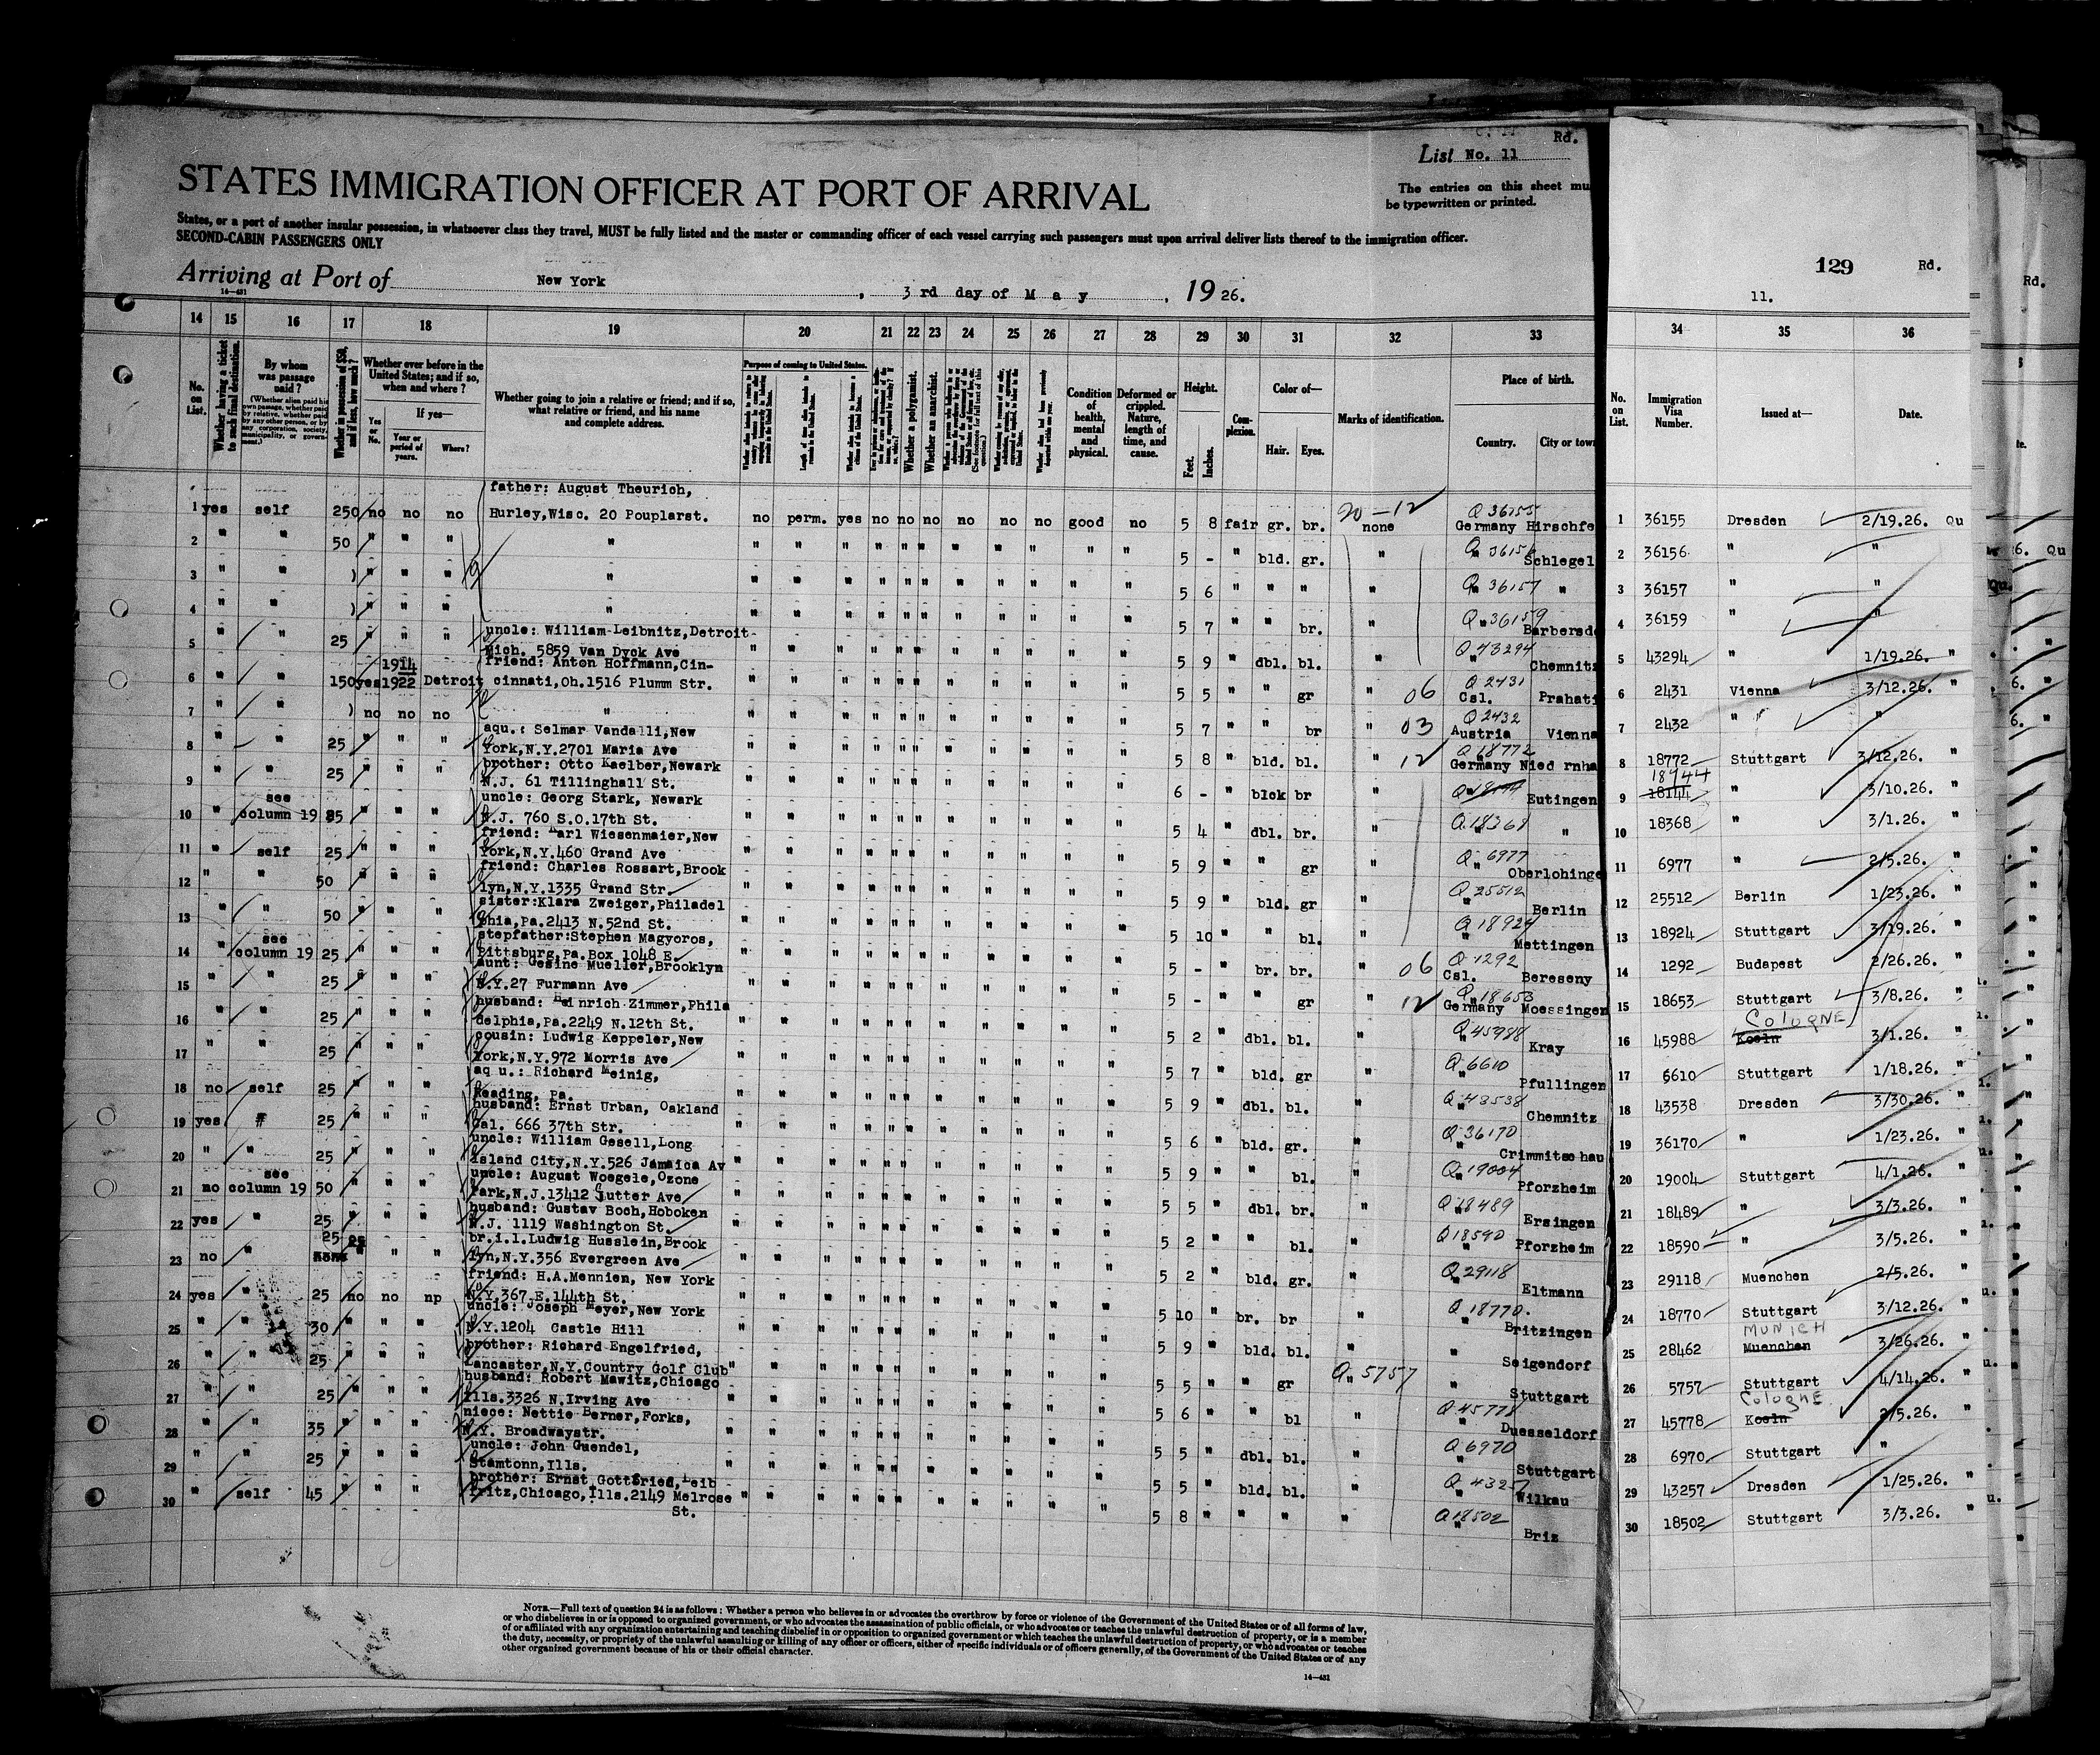 Rd.
List No. 11
STATES IMMIGRATION OFFICER AT PORT OF ARRIVAL
The entries on this sheet mu
be typewritten or printed.
States, or a port of another insular possession, in whatsoever class they travel, MUST be fully listed and the master or commanding officer of each vessel carrying such passengers must upon arrival deliver lists thereof to the immigration officer.
SECOND-CABIN PASSENGERS ONLY
Arriving at Port of New York, 3 rd day of M a y, 1926.
14—431
129 Rd.
11.
Rd.
14 15 16 17 18 19 20 21 22 23 24 25 26 27 28 29 30 31 32 33 34 35 36
No. on List.
Whether having a ticket to such final destination.
By whom was passage paid?
(Whether alien paid his own passage, whether paid by relative, whether paid by any other person, or by any corporation, society, municipality, or government.)
Whether in possession of $50, and if less, how much?
Whether ever before in the United States; and if so, when and where?
Yes or No.
If yes—
Year or period of years.
Where?
Whether going to join a relative or friend; and if so, what relative or friend, and his name and complete address.
Purpose of coming to United States.
Whether a polygamist.
Whether an anarchist.
Condition of health, mental and physical.
Deformed or crippled. Nature, length of time, and cause.
Height.
Feet. Inches.
Complexion.
Color of—
Hair. Eyes.
Marks of identification.
Place of birth.
Country. City or town
No. on List.
Immigration Visa Number.
Issued at—
Date.
father: August Theurich,
1 yes self 250 no no no Hurley,Wisc. 20 Pouplarst. no perm. yes no no no no no no good no 5 8 fair gr. br. none Germany Hirschfe 1 36155 Dresden 2/19.26. Qu
20-12 Q 36155
2 " " 50 " " " " 5 - " bld. gr. " Schlegel 2 36156 " "
3 " " ) " " " " 5 6 " " " " Q 36157 " 3 36157 " "
4 " " ) " " " " 5 7 " " br. " Q 36159 Barbersdo 4 36159 " "
uncle: William Leibnitz,Detroit
5 " " 25 " " " Mich. 5859 Van Dyck Ave 5 9 " dbl. bl. " Q 43294 Chemnitz 5 43294 " 1/19.26. "
friend: Anton Hoffmann,Cin-
6 " " 150 yes 1914 1922 Detroit cinnati,Oh.1516 Plumm Str. 5 5 " " gr " 06 Q 2431 Csl. Prahati 6 2431 Vienna 3/12.26. "
7 " " ) no no no " 5 7 " " br " 03 Q 2432 Austria Vienna 7 2432 " "
aqu.: Selmar Vandalli,New
8 " " 25 " " " York,N.Y.2701 Maria Ave 5 8 " bld. bl. " 12 Q 18772 Germany Nied rnha 8 18772 Stuttgart 3/12.26.
brother: Otto Kaelber,Newark
9 " " 25 " " " N.J. 61 Tillinghall St. 6 - " blck br Eutingen 9 18144 18944 " 3/10.26. "
uncle: Georg Stark, Newark
10 " see column 19 25 " " " N.J. 760 S.O.17th St. 5 4 " dbl. br. " Q.18368 " 10 18368 " 3/1.26. "
friend: Karl Wiesenmaier,New
11 " self 25 " " " York,N.Y.460 Grand Ave 5 9 " " gr " Q 6977 Oberlohinge 11 6977 " 2/5.26. "
friend: Charles Rossart,Brook
12 " " 50 " " " lyn,N.Y.1335 Grand Str. 5 9 " bld. gr " Q 25512 Berlin 12 25512 Berlin 1/23.26. "
sister:Klara Zweiger,Philadel
13 " " 50 " " " phia,Pa.2413 N.52nd St. 5 10 " " bl. " Q 18924 Mettingen 13 18924 Stuttgart 3/19.26. "
stepfather:Stephen Magyoros,
14 " see column 19 25 " " " Pittsburg,Pa.Box 1048 E. 5 - " br. br. " 06 Q 1292 Csl. Bereseny 14 1292 Budapest 2/26.26. "
aunt: Gesine Mueller,Brooklyn
15 " " 25 " " " N.Y.27 Furmann Ave 5 - " " gr " 12 Q 18653 Germany Moessingen 15 18653 Stuttgart 3/8.26. "
husband: Heinrich Zimmer,Phila
16 " " 25 " " " delphia,Pa.2249 N.12th St. 5 2 " dbl. bl. " Q 45988 Kray 16 45988 Koeln COLOGNE 3/1.26. "
cousin: Ludwig Keppeler,New
17 " " 25 " " " York,N.Y.972 Morris Ave 5 7 " bld. gr " Q 6610 Pfullingen 17 6610 Stuttgart 1/18.26. "
aq u.: Richard Meinig,
18 no self 25 " " " Reading, Pa. 5 9 " dbl. bl. " Q 43538 Chemnitz 18 43538 Dresden 3/30.26. "
husband: Ernst Urban, Oakland
19 yes # 25 " " " Cal. 666 37th Str. 5 6 " bld. gr. " Q 36170 Crimmitschau 19 36170 " 1/23.26. "
uncle: William Gesell,Long
20 " " 25 " " " Island City,N.Y.526 Jamaica Av 5 9 " " bl. " Q 19004 Pforzheim 20 19004 Stuttgart 4/1.26. "
uncle: August Woegele,Ozone
21 no see column 19 50 " " " Park,N.J.13412 Sutter Ave 5 5 " dbl. br. " Q 18489 Ersingen 21 18489 " 3/3.26. "
husband: Gustav Boch,Hoboken
22 yes " 25 " " " N.J. 1119 Washington St. 5 2 " " bl. " Q 18590 Pforzheim 22 18590 " 3/5.26. "
br.i.l.Ludwig Husslein,Brook
23 no " 25 25 " " " lyn,N.Y.356 Evergreen Ave 5 2 " bld. gr. " Q 29118 Eltmann 23 29118 Muenchen 2/5.26. "
friend: H.A.Mennien, New York
24 yes " 25 no no np N.Y.367 E.144th St. 5 10 " br. br " Q 18770. Britzingen 24 18770 Stuttgart 3/12.26. "
uncle: Joseph Meyer,New York
25 " " 30 " " " N.Y.1204 Castle Hill 5 9 " bld. bl. " " Seigendorf 25 28462 Muenchen MUNICH 3/26.26. "
brother: Richard Engelfried,
26 " " 25 " " " Lancaster,N.Y.Country Golf Club 5 5 " " gr Q 5757 " Stuttgart 26 5757 Stuttgart 4/14.26. "
husband: Robert Mawitz,Chicago
27 " " 25 " " " Ills.3326 N.Irving Ave 5 6 " " bl " Q 45778 Duesseldorf 27 45778 Koeln Cologne 2/5.26. "
niece: Nettie Berner,Forks,
28 " " 35 " " " N.Y. Broadwaystr. 5 5 " dbl. bl. " Q 6970 Stuttgart 28 6970 Stuttgart "
uncle: John Guendel,
29 " " 25 " " " Stamtonn,Ills. 5 5 " bld. bl. " Q 43257 Wilkau 29 43257 Dresden 1/25.26. "
brother: Ernst Gottfried,Leib
30 " self 45 " " " britz,Chicago,Ills.2149 Melrose St. 5 8 " " " " Q 18502 Briz 30 18502 Stuttgart 3/3.26. "
NOTE.—Full text of question 24 is as follows: Whether a person who believes in or advocates the overthrow by force or violence of the Government of the United States or of all forms of law,
or who disbelieves in or is opposed to organized government, or who advocates the assassination of public officials, or who advocates or teaches the unlawful destruction of property, or is a member
of or affiliated with any organization entertaining and teaching disbelief in or opposition to organized government or which teaches the unlawful destruction of property, or who advocates or teaches
the duty, necessity, or propriety of the unlawful assaulting or killing of any officer or officers, either of specific individuals or of officers generally, of the Government of the United States or of any
other organized government because of his or their official character.
14—431